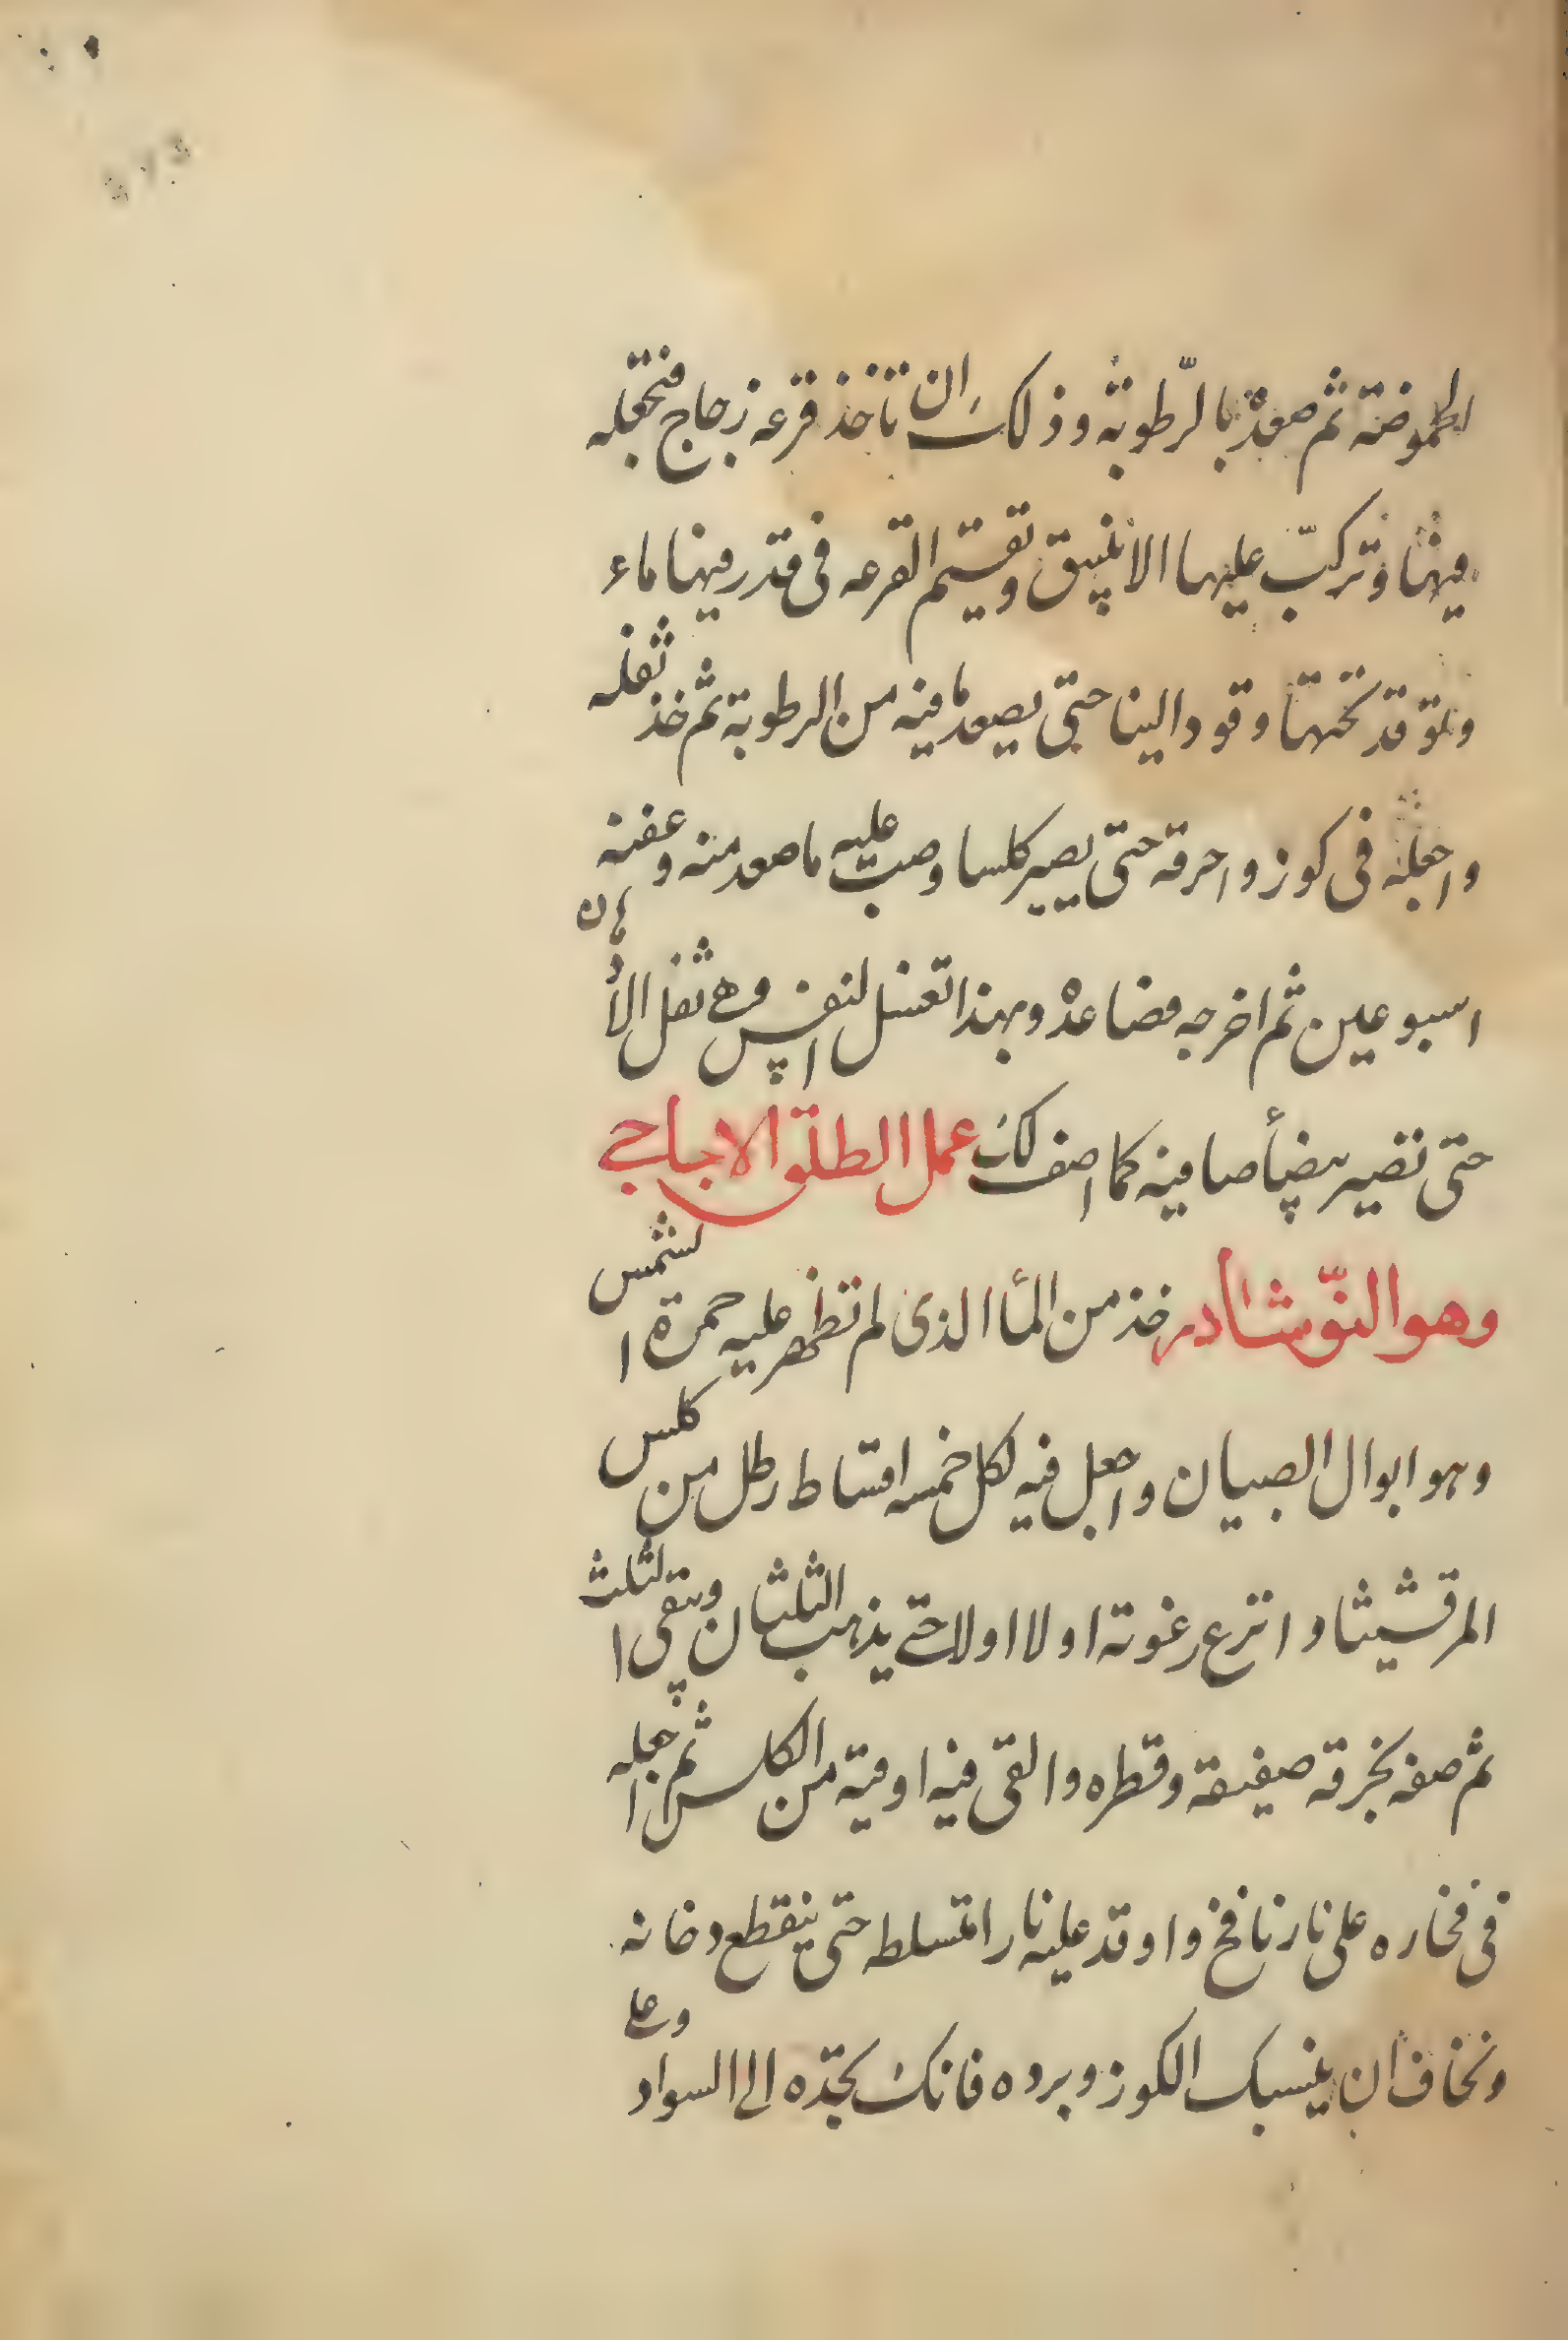 الحموضة ثم صعده بالرّطوبة وذلك ان تأخذ قرعه زجاج فتجعله
فيها وتركبّ عليها الانبيق وتقيم القرعه فى قدر فيها ماء
وتوقد تحتها وقودا لينا حتى يصعد ما فيه من الرطوبة ثم خذ ثفله
واجعله فى كوز واحرقه حتى يصير كلسا وصب عليه ما صعد منه وعفنه
اسبوعين ثم اخرجه فصاعده وبهذا تغسل النفس وهى ثفل الادهان
حتى تصير بيضأ صافيه كما اصف لك عمل الطلق الاجاجى
وهو النّوشادر خذ من المأ الذى لم تظهر عليه حمرة الشمس
وهو ابوال الصبيان واجعل فيه لكل خمسه اقساط رطل من كلس
المرقشيثا وانزع رغوته اولا اولا حتى يذهب الثلثان ويبقى الثلث
ثم صفه بخرقه صفيقة وقطره والقى فيه اوقية من الكلس ثم اجعله
فى فخاره على نار نافخ واوقد عليه نارا متسلطه حتى ينقطع دخانه
وتخاف ان ينسبك الكوز وبرده فانك تجدّه الى السواد وعلى